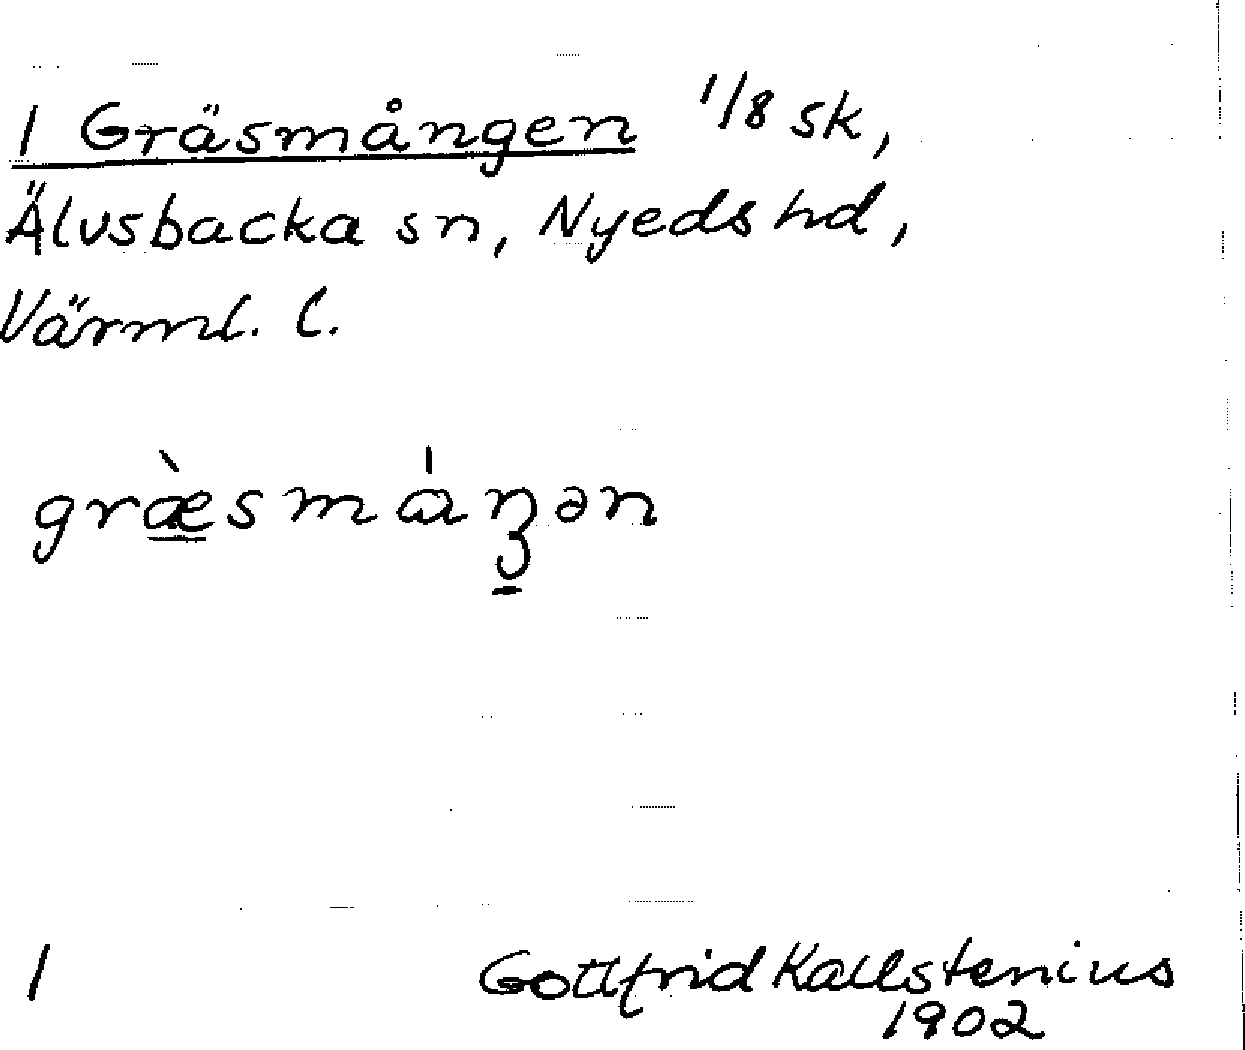 1 Gräsmången 1/8 sk,
Älvsbacka sn, Nyeds hd,
Värml. l.
græ̀smáŋən
1 Gottfrid Kallstenius
1902